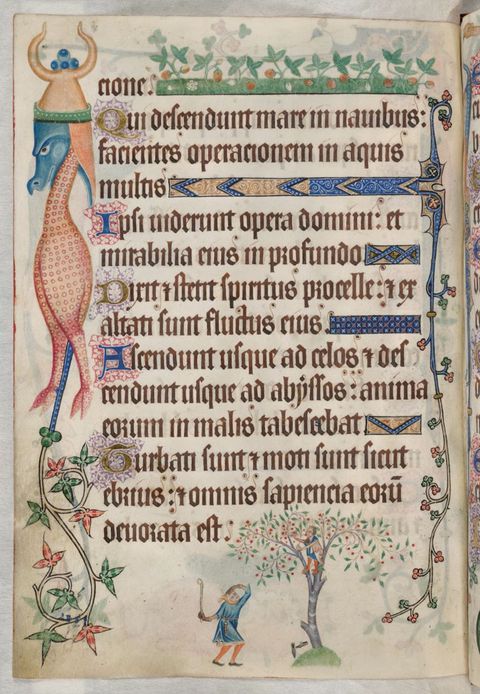 cione.
Qui descendunt mare in nauibus:
facientes operacionem in aquis
multis
Ipsi uiderunt opera domini: et
mirabilia eius in profundo
Dixit ⁊ stetit spiritus procelle: ⁊ ex
altati sunt fluctus eius.
Ascendunt usque ad celos ⁊ des
cendunt usque ad abyssos: anima
eorum in malis tabescebat
Turbati sunt ⁊ moti sunt sicut
ebrius: ⁊ omnis sapiencia eorū
deuorata est.